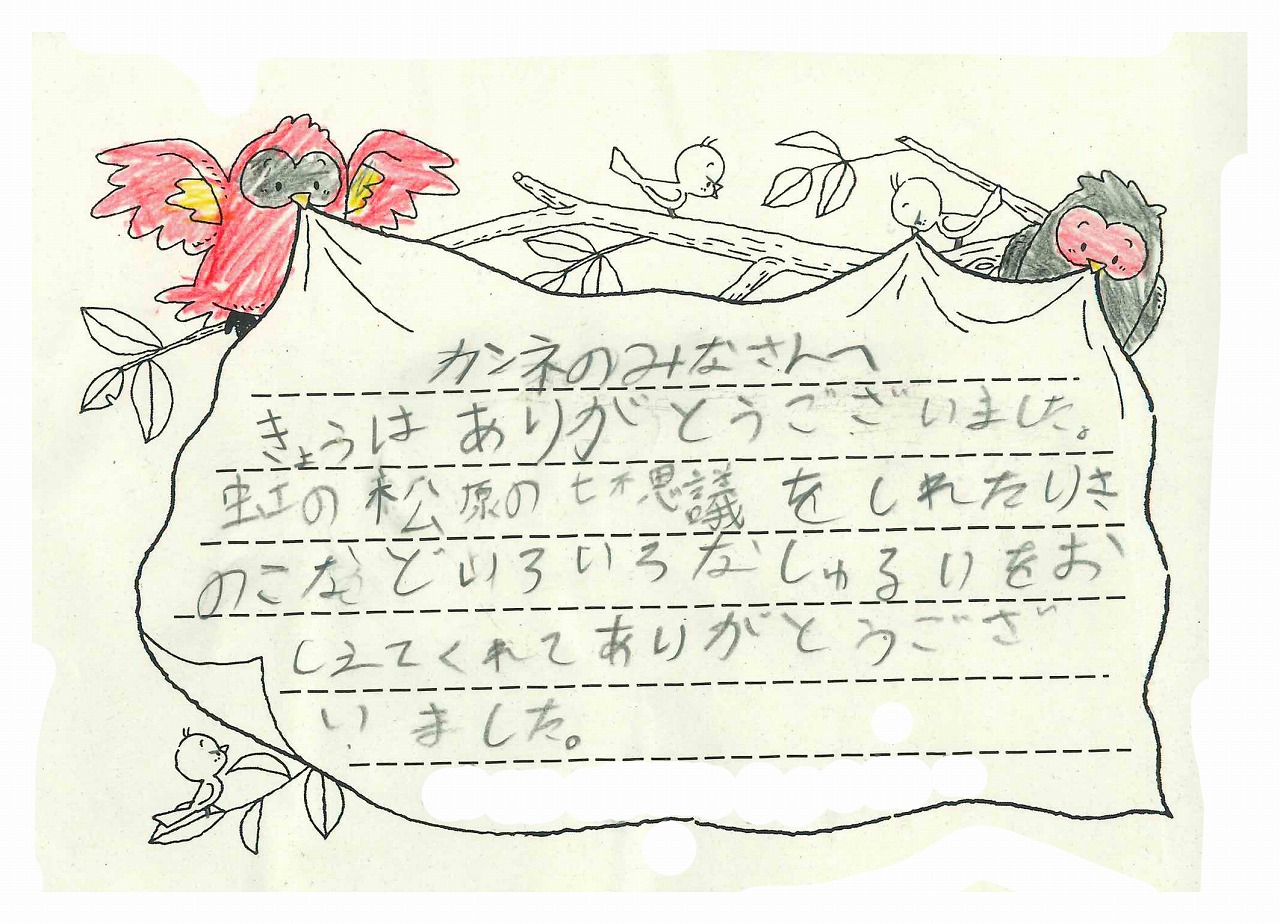 カンネのみなさんへ
きょうは ありがとうございました。
虹の 松原の 七不思議 をしれたりき
のこなどいろいろなしゅるいをお
しえてくれてありがとうござ
いました。